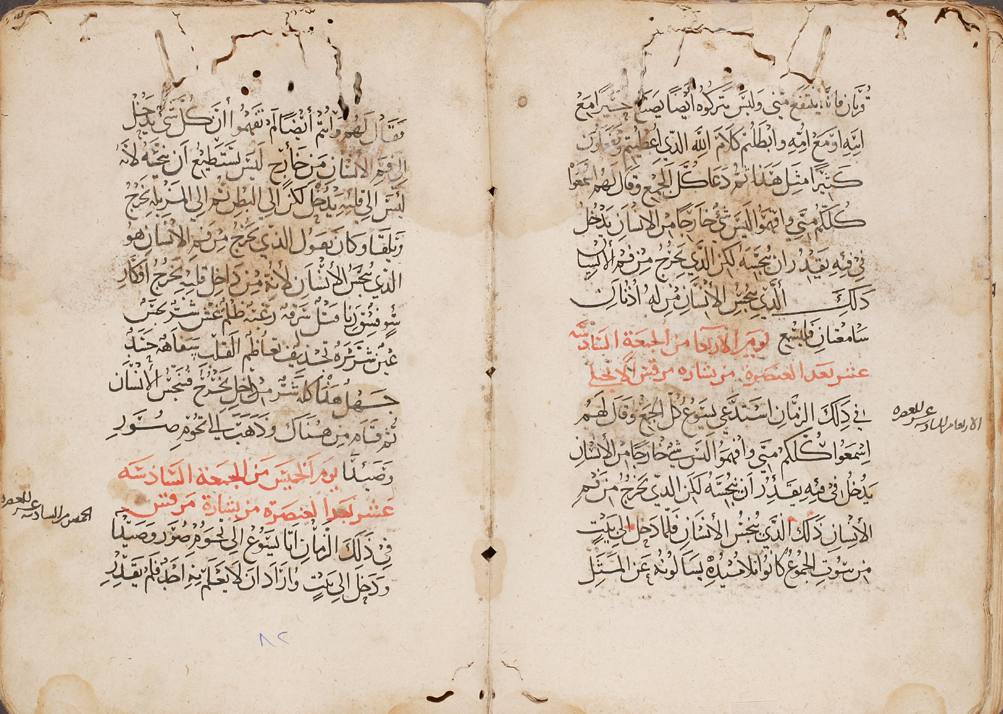 قربان فانه ينتفع مني وليس تتركوه ايضا يصنع خيرا مع
ابيه او مع امه وابطلتم كلام الله الذي اعطيتم وتفعلون
كثيرا مثل هذا ثم دعا كل الجمع وقال لهم اسمعوا
كلكم مني وافهموا ليس شي خارجا من الانسان يدخل
في فيه يقدر ان ينجسه لكن الذي يخرج من فم الانسان
ذلك الذي ينجس الانسان من له اذنان
سامعتان فليسمع يوم الاربعا من الجمعة السادسه
عشر بعد العنصرة من بشاره مرقس الانجيلي
في ذلك الزمان استدعي يسوع كل الجمع وقال لهم
اسمعوا كلكم مني وافهموا ليس شي خارجا من الانسان
يدخل في فيه يقدر أن ينجسه لكن الذي يخرج من فم
الانسان ذلك الذي ينجس الانسان فلما دخل الى بيت
من سوت الجموع كانوا تلاميذه يسالونه عن المثل
الاربعا من السادسه عشر للعنصره
فقال لهم وانتم أيضا لم تفهموا أن كل شي يدخل
الى فم الانسان من خارج ليس يستطيع ان ينجسه لانه
ليس الى قلبه يدخل لكن الى البطن ثم الى المزبلة يخرج
وكان يقول الذي يخرج من فم الانسان هو
الذي ينجس الانسان لانه من داخل قلبه يخرج افكار
سو فسق زنا قتل سرقه رغبة ظلم غش شر
عين شريره تجديف تعاظم القلب سفاهه
جهل هذا كله شر من داخل يخرج فينجس الانسان
ثم قام من هناك وذهب الى تخوم صور
وصيدا يوم الخميس من الجمعة السادسه
عشر بعد العنصره من بشارة مرقس
في ذلك الزمان اتا يسوع الى تخوم صور وصيدا
ودخل الى بيت واراد ان لا يعلم به احد فلم يقدر
الخميس من السادسه عشر للعنصره
٨٢